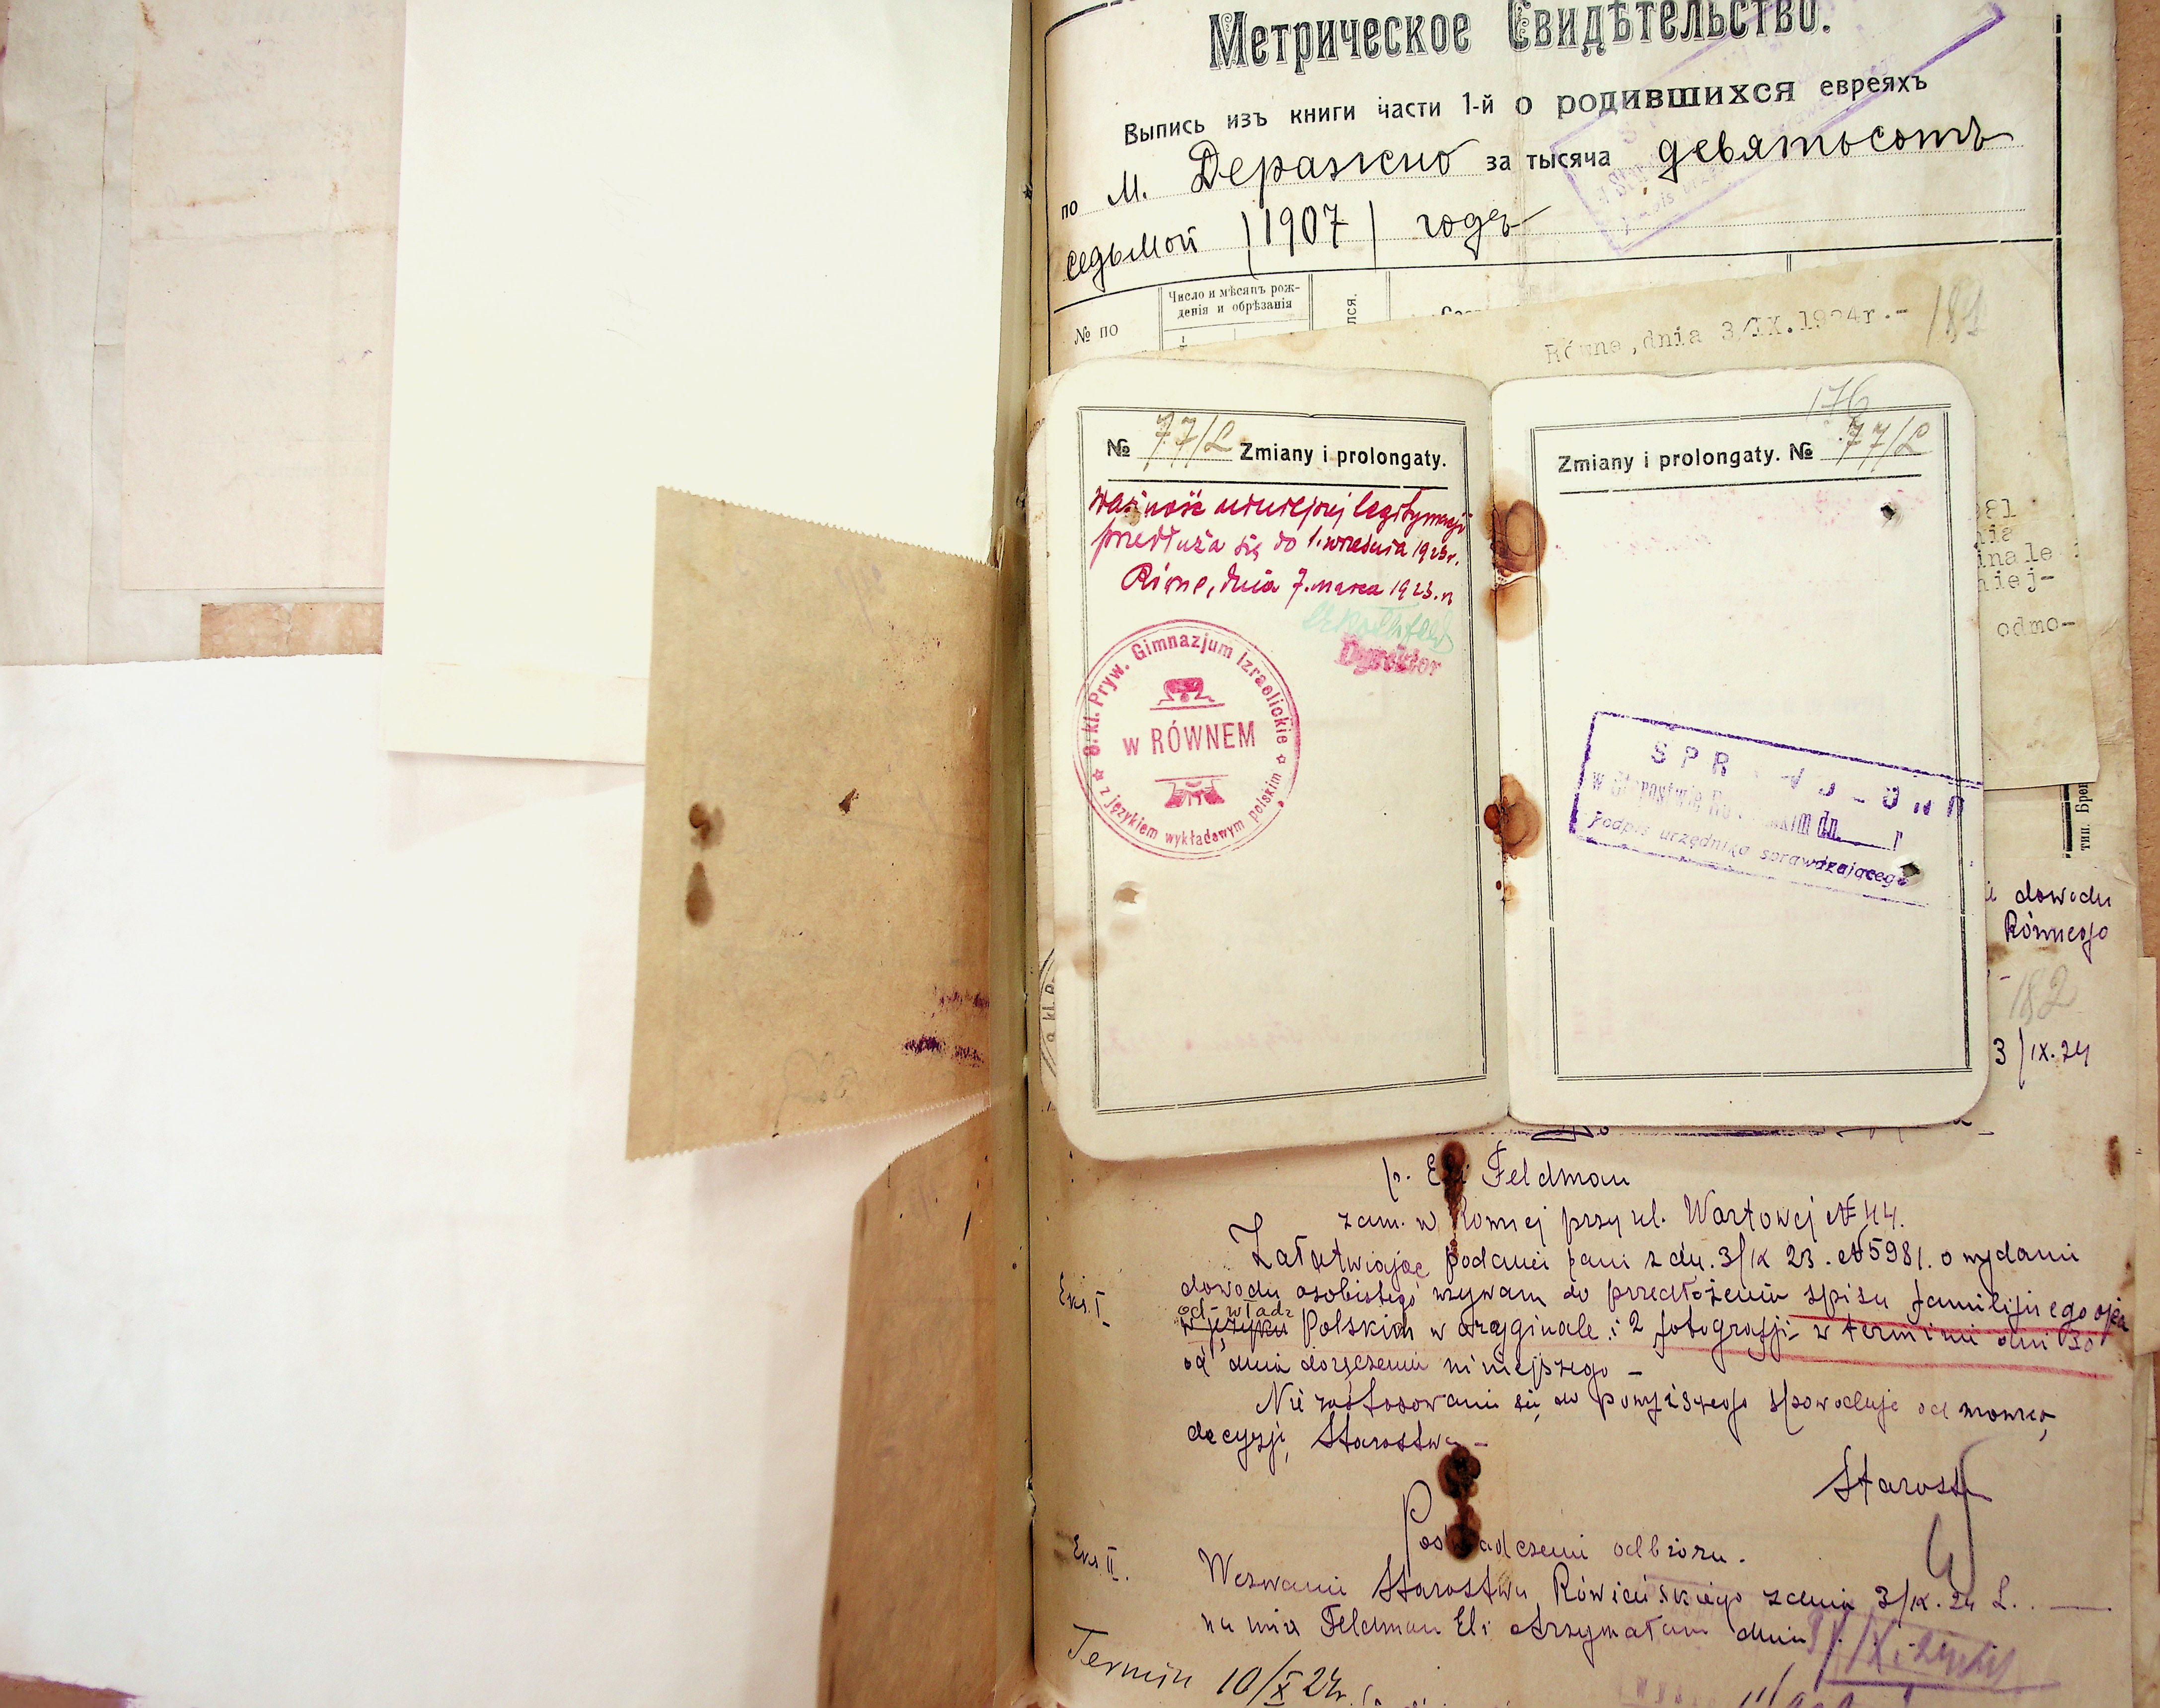 Метрическое Свидѣтельство.
Выпись изъ книги части 1-й о родившихся евреяхъ
по м. Деражно за тысяча девятьсотъ
седьмой (1907) годъ
№ по
Число и мѣсяцъ рож-
денія и обрѣзанія
Równe, dnia 3/IX.1924r.-
181
№ 77/L Zmiany i prolongaty.
Ważność niniejszej legitymacji
przedłuża się do 1. września 1923 r.
Równe, dnia 7. marca 1923. r
Dyrektor
8. kl. Pryw. Gimnazjum Izraelickie
w RÓWNEM
z językiem wykładowym polskim
176
Zmiany i prolongaty. № 77/L
w Starostwie dn. r
Podpis urzędnika sprawdzającego
981
nia
inale i
niej-
odmo-
тип.
dowodu
Równego
182
3/IX.24
p. Eli Feldman
zam. w Równej przy ul. Wartowej № 44.
Załatwiając podanie pani z dn. 3/IX 23. № 5981. o wydanie
Eks. I
dowodu osobistego wzywam do przedłożenia spisu familijnego ojca
od władz
w języku Polskich w oryginale i 2 fotografji w terminie dni 30
od dnia doręczenia niniejszego -
Nie zastosowanie się do powyższego spowoduje odmowną
decyzję Starostwa -
Starosta
Poświadczenie odbioru.
Eks. II.
Wezwanie Starostwa Rówieńskiego z dnia 3/IX. 24 L.
na imię Feldman Eli otrzymałam dnia
Termin 10/X 24r.